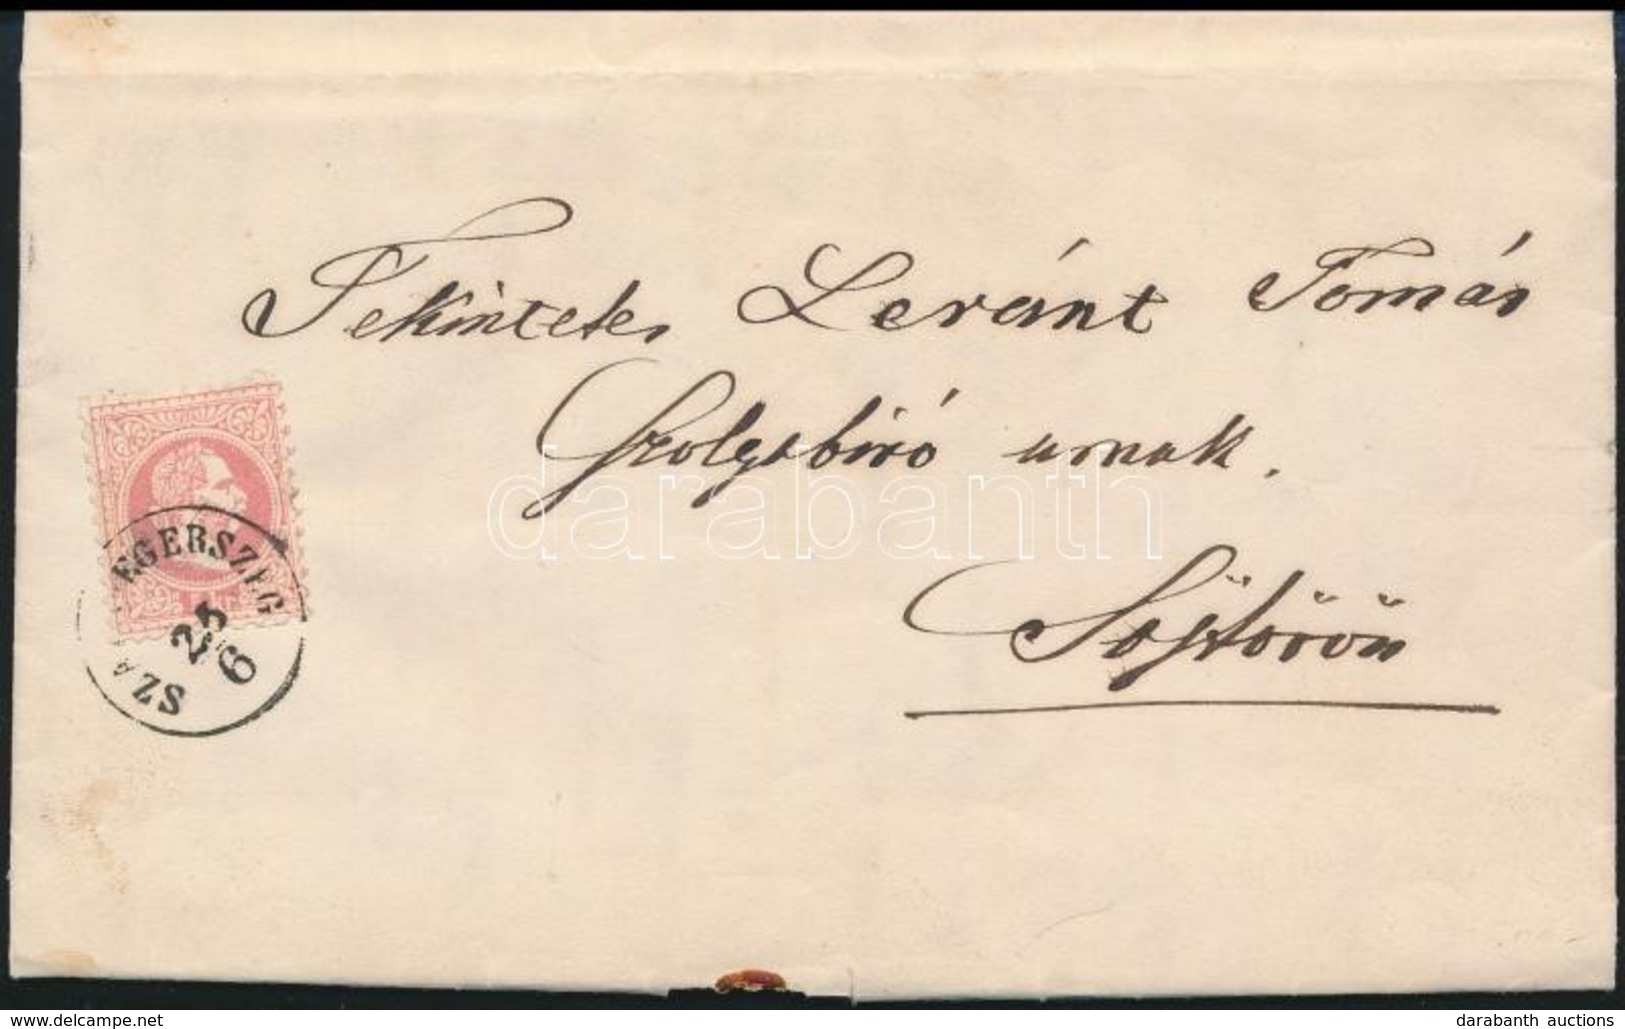 Tekintetes Leránt Tomás
Szolgabiró urnak.
Söjtörön
SZALAEGERSZEG
25
6
darabanth
www.delcampe.net
darabanth auctions